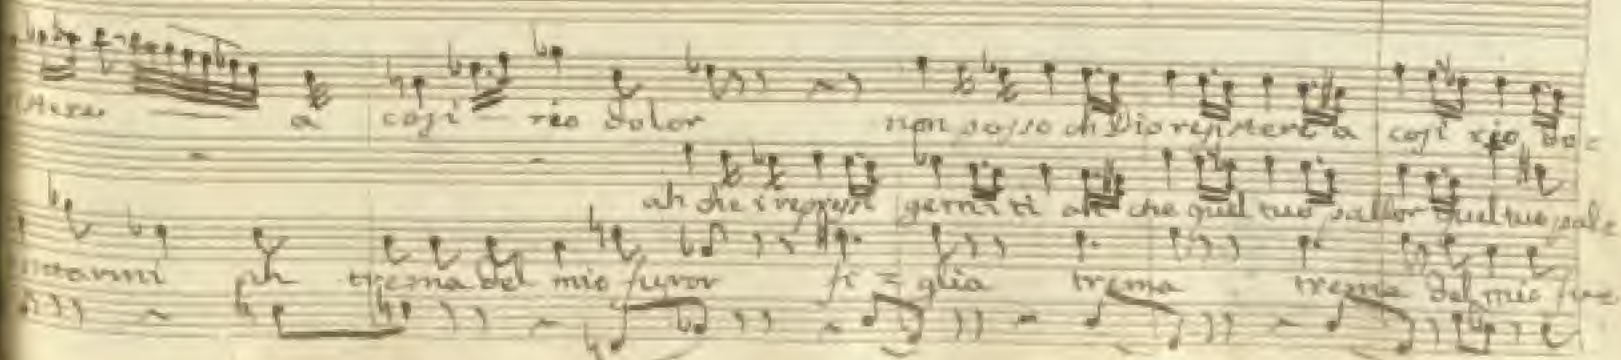 a cosi rio dolor non posso oh Dio resistere a cosi rio do=
ah che i repressi gemiti ah che quel tuo pallor quel tuo pal=
trema del mio furor fi = glia trema trema del mio fur